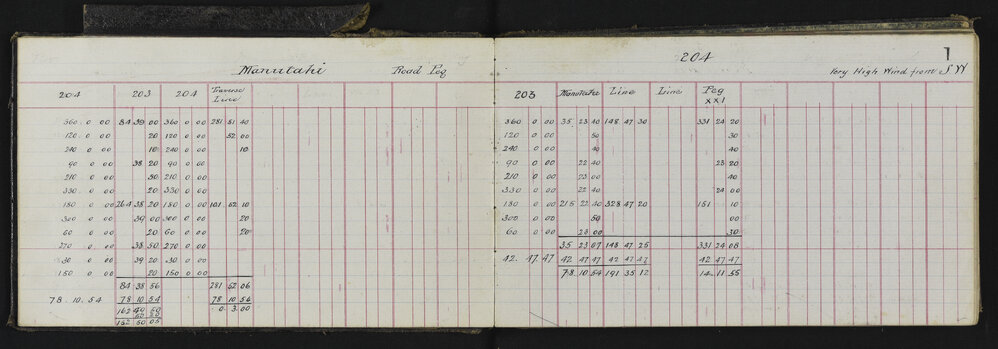 Manutahi Road Peg
204 203 204 Traverse Line
360 0 00 84 39 00 360 0 00 281 51 40
120 0 00 20 120 0 00 52 00
240 0 00 10 240 0 00 10
90 0 00 38 20 90 0 00
210 0 00 30 210 0 00
330 0 00 20 330 0 00
180 0 00 264 38 20 180 0 00 101 52 10
300 0 00 39 00 300 0 00 20
60 0 00 20 60 0 00 20
270 0 00 38 50 270 0 00
30 0 00 39 20 30 0 00
150 0 00 20 150 0 00
84 38 56 281 52 06
78 10 54 78 10 54 78 10 54
162 0 3 00
162 50 05
1
204
Very High Wind from S W
203 Manutahi Line Line Peg XXI
360 0 00 35 23 40 148 47 30 331 24 20
120 0 00 50 30
240 0 00 40 40
90 0 00 22 40 23 20
210 0 00 23 00 40
330 0 00 22 40 24 00
180 0 00 215 22 40 328 47 20 151 10
300 0 00 50 00
60 0 00 23 00 30
35 23 07 148 47 25 331 24 08
42 47 47 42 47 47 42 47 47 42 47 47
78 10 54 191 35 12 14 11 55